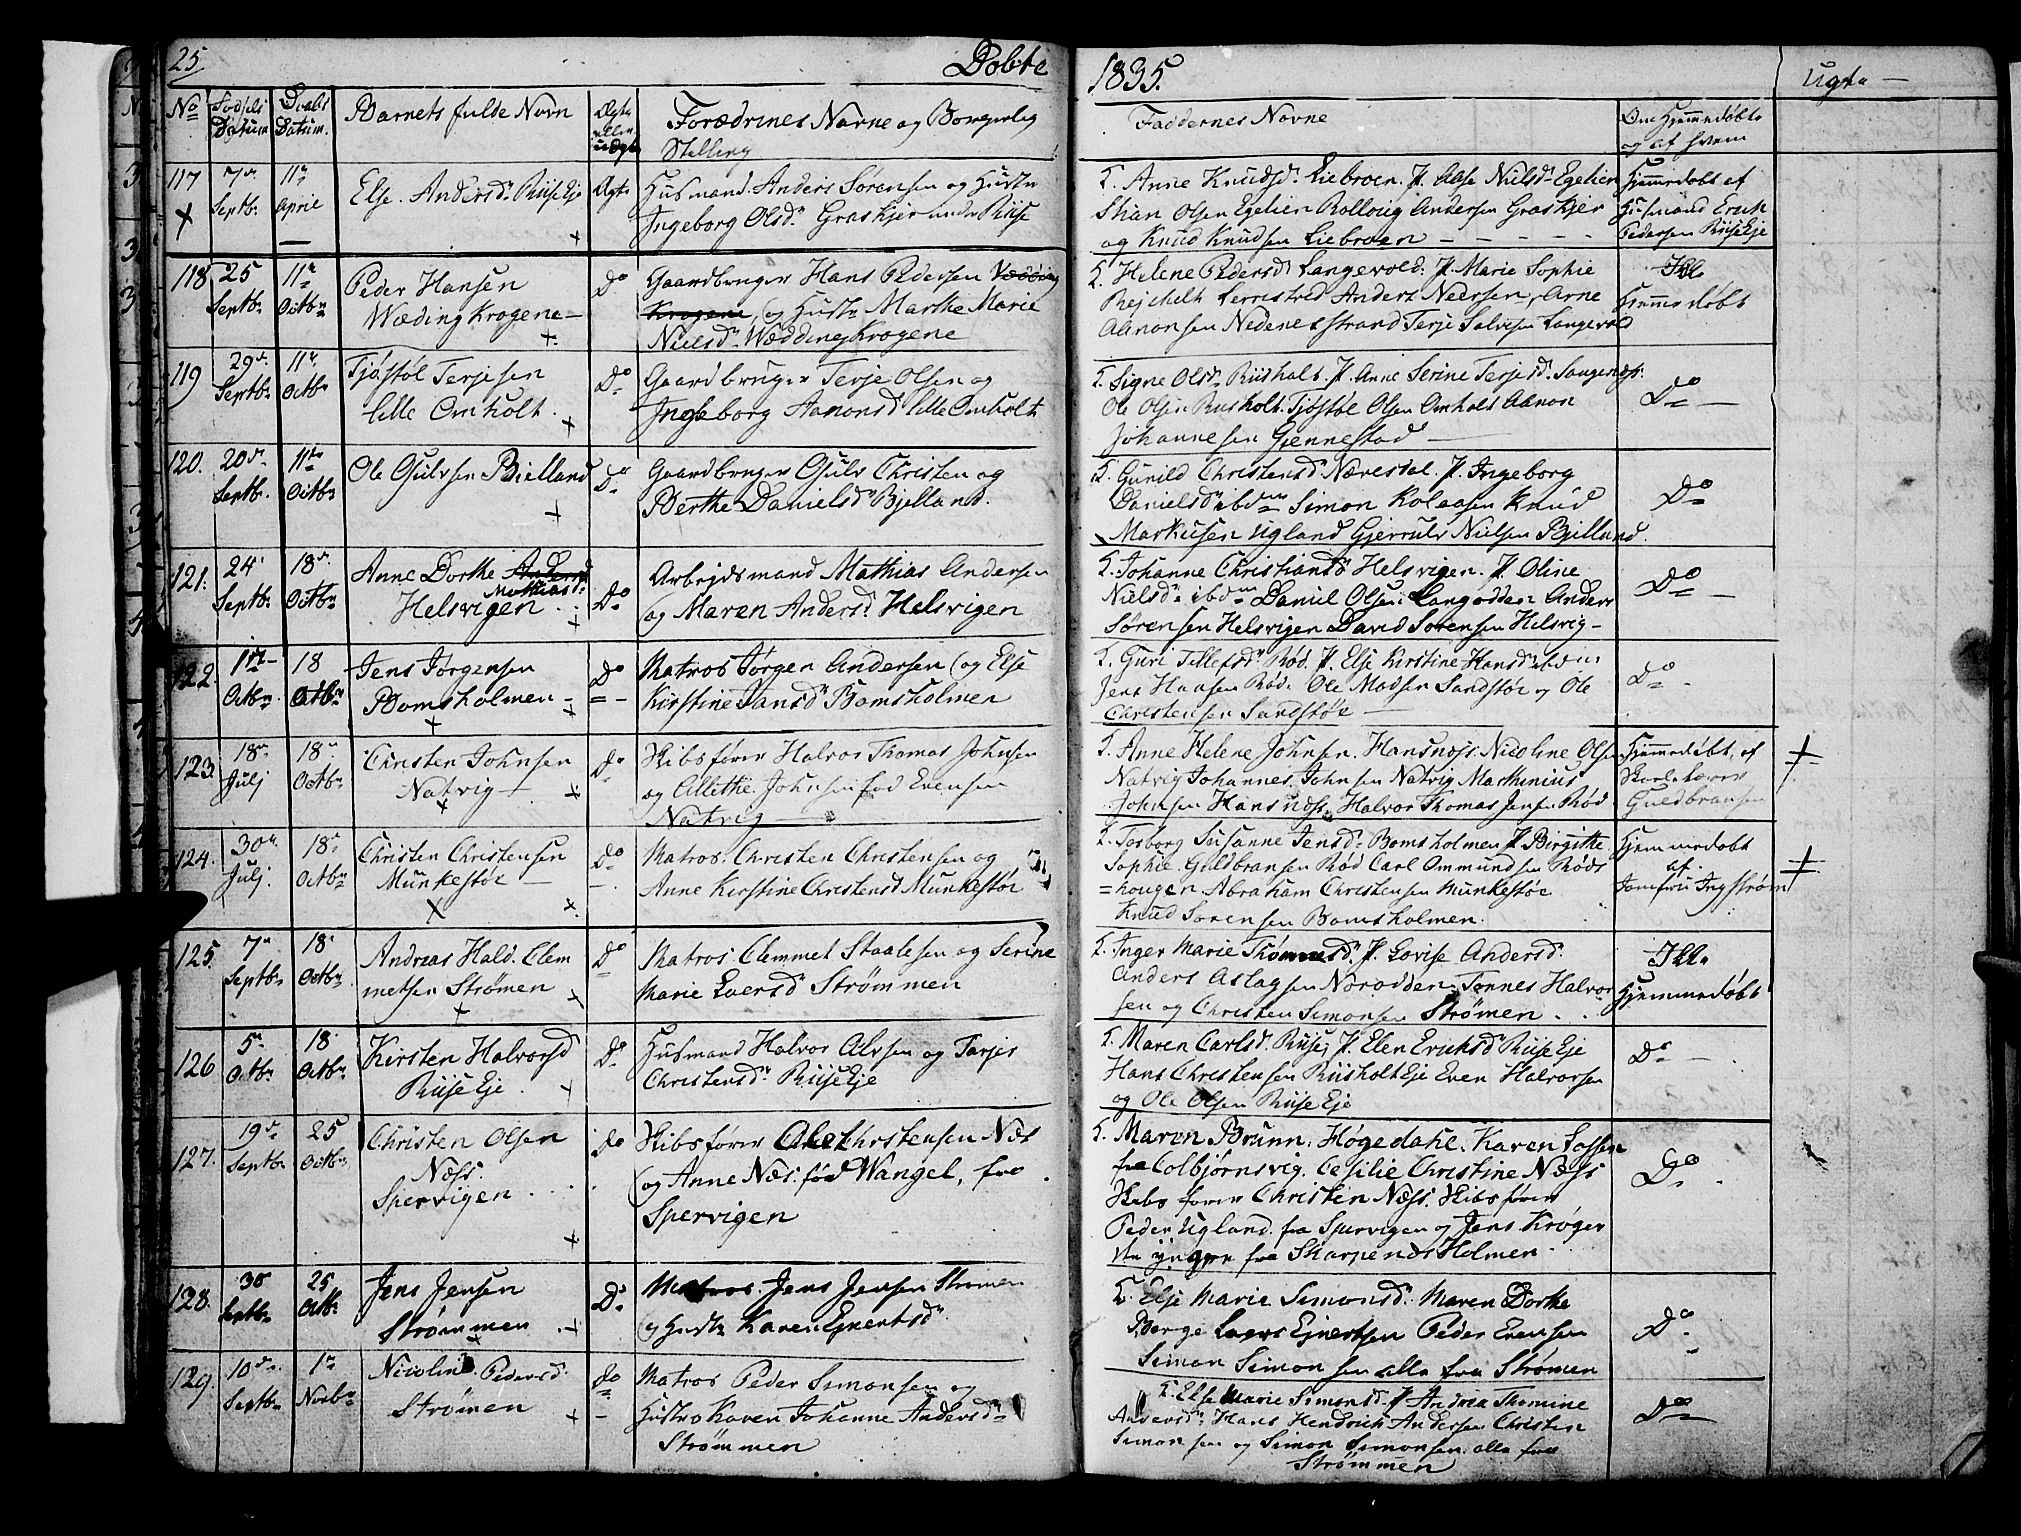 25 Døbte 1835. Ugta —
No Fødsels Datum Daabs Datum. Barnets fulde Navn Ægte eller uægte Forældrenes Navne og Borgerlig Stilling Faddernes Navne Om Hjemmedøbt og af hvem
117 7de Septbr 11te April Else. Andersdr RiiseEje Ægte Husmand. Anders Sørensen og Hustr
Ingeborg Olsdr Graskjer under Riise
F. Anne Knudsdr Liebroen. P. Aase Nielsdr Egelien
Stian Olsen Egelien Rollovig Andersen Graskjer
og Knud Knudsen Liebroen — — — —
Hjemmedøbt af
Husmand Erick
Pedersen RiiseEje
118 25 Septbr 11te Octbr Peder Hansen
Wæding Krogene — Do
Gaardbruger Hans Pedersen
Krogene, og Hustr Marthe Marie
Nielsdr Wædding Krogene
F. Helene Pedersdr Langevold. P. Marie Sophie
Rejchelt Lerrestved Anders Neersen, Arne
Alenonsen Nedenes strand Terje Salvesen Langevold
Ikke
Hjemmedøbt
119 29de Septbr 11te Octbr Tjøstøl Terjesen
lille Omholt. Do
Gaardbruger Terje Olsen og
Ingeborg Aanonsdr lille Omholt
F. Signe Olsdr Riisholt. P. Anne Serine Terjesdr Saugenæs.
Ole Olsen Riisholt. Tjøstøl Olsen Omholt Aanon
Johannesen Gjennestad —
Do —
120. 20de Septbr. 11te Octbr Ole Gjulvsen Bielland Do
Gaardbruger Gjulv Christen og
Berthe Danielsdr Bjelland.
F. Gunild Christensdr Nævesdal. P. Ingeborg
Danielsdr ibdm Simon Kolaasen Knud
Markusen Ugland Gjerrulv Nielsen Bjelland.
Do
121. 24 Septbr 18de Octbr Anne Dorthe Andersd
Mathiasdr
Helsvigen Do
Arbejdsmand Mathias Andersen
og Maren Andersdr Helsvigen
F. Johanne Christiansdr Helsvigen. P. Oline
Nielsdr ibdm Daniel Olsen Langodden Anders
Sørensen Helsvigen David Sørensen Helsvig —
Do —
122. 17 Octbr. 18 Octbr Jens Jørgensen
Bomsholmen — Do
Matros Jørgen Andersen og Else
Kirstine Jansdr Bomsholmen
F. Guri Tellefsdr Rød. P. Else Kirstine Hansdr ibdm
Jens Hansen Rød. Ole Madsen Sandstøe og Ole
Christensen Sandstøe —
Do
123. 18de Julj 18 Octbr Christen Johnsen
Natvig — Do
Skibsfører Halvor Thomas Johnsen
og Allethe Johnsen fød Evensen
Natvig —
F. Anne Helene Johnsen. Hansnæss Nicoline Olsen
Natvig Johannes Johnsen Natvig Marthinius
Johnsen Hansnæss. Halvor Thomas Jensen Rød
Hjemmedøbt, af
Guldbransen
124. 30te Julj 18de Octbr Christen Christensen
Munkestøe — Do
Matros. Christen Christensen og
Anne Kirstine Christensdr Munkestøe
F. Torborg Susanne Jensdr Bomsholmen P. Birgithe
Sophie. Guldbransen Rød Carl Ommundsen Røds
=hougen Abraham Christensen Munkestøe
Knud Sørensen Bomsholmen.
Hjemmedøbt
af
Jomfru Ingstrøm
125. 7de Septbr 18 Octbr. Andreas Hald. Clem
metsen Strømen Do
Matros. Clemmet Staalesen og Serine
Marie Eversdr Strømmen
F. Inger Marie Thommesdr. P. Lovise Andersdr.
Anders Aslagsen Norodden. Tonnes Halvor
sen og Christen Simonsen Strømen.
Ikke
Hjemmedøbt
126 5te Octbr 18 Octbr Kirsten Halvorsd
Riise Eje Do
Husmand Halvor Alvsen og Tarjer
Christensdr RiiseEje
F. Maren Carlsdr. Riise, P. Elen Ericksdr Riise Eje
Hans Christensen RiisholtEje Even Halvorsen
og Ole Olsen Riise Eje
Do —
127. 19de Septbr 25 Octbr. Christen Olsen
Næss.
Spervigen Do
Skibsfører Ole Christensen Næs
og Anne Næs. fød Wangel, fra
Spervigen
F. Maren Brunn. Høgedahl. Karen Tossen
fra Colbjørnsvig. Cesilie Christine Næss
Skibsfører Christen Næss. Skibsfører
Peder Ugland. fra Spervigen og Jens Krøger
den yngre fra Skarpenæs Holmen.
Do
128. 30 Septbr 25 Octbr Jens Jensen
Strømmen Do
Matros. Jens Jensen Strømen
og Hustr Karen Ejnertsdr
F. Else Marie Simonsdr. Maren Dorthe
Børge Lagers Ejnertsen Peder Evensen
Simon Simonsen alle fra Strømen
Do
129. 10de Septbr 1te Novbr Nicoline Pedersd.
Strømen Do
Matros Peder Simonsen og
Hustro Karen Johanne Andersdr
Strømmen
F. Else Marie Simonsdr. P. Andrea Thomine
Andersdr. Hans Hendrich Andersen Christen
Simonsen og Simon Simonsen. alle fra
Strømmen
Do